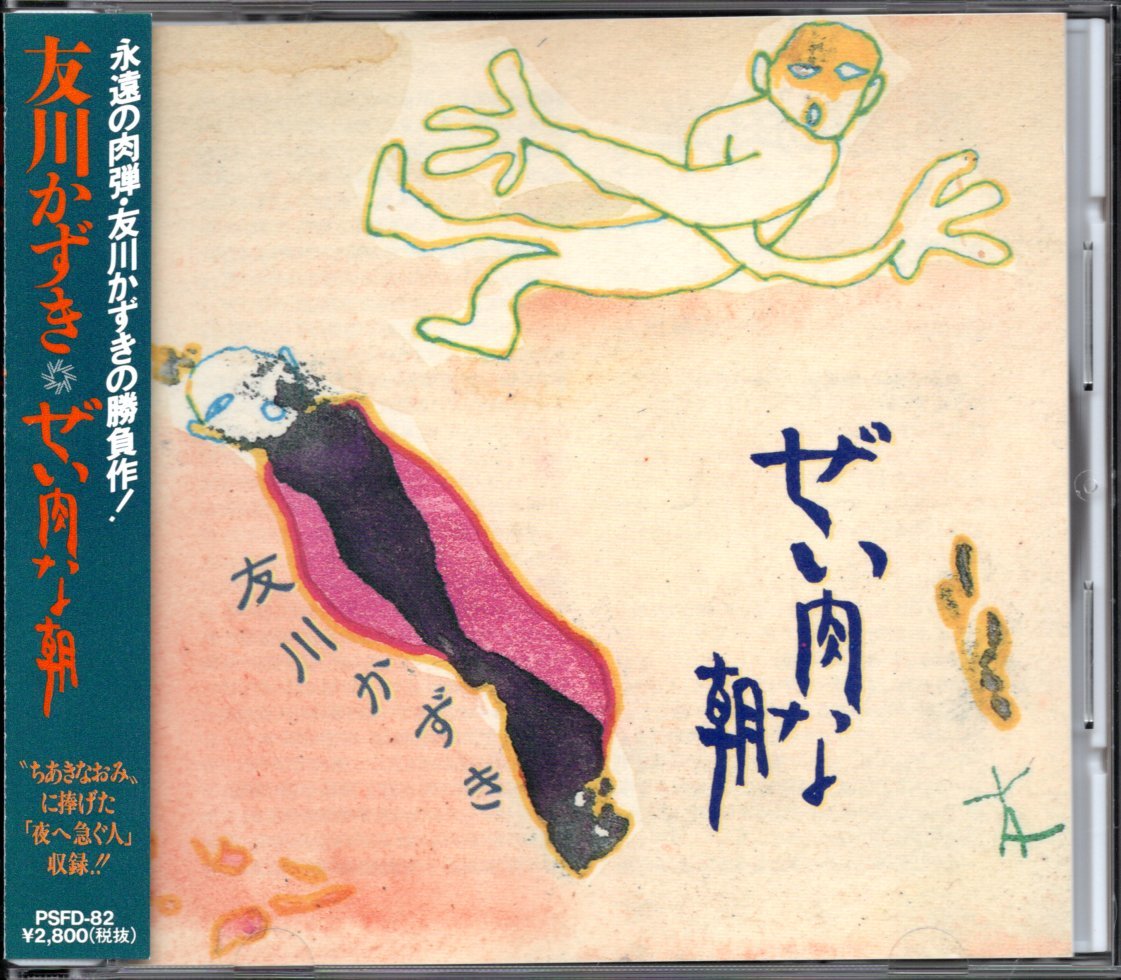 永遠の肉弾・友川かずきの勝負作!
友川かずき
ぜい肉な朝
〝ちあきなおみ〟
に捧げた
「夜へ急ぐ人」
収録!!
PSFD-82
¥2,800(税抜)
ぜい肉な
朝
友川かずき